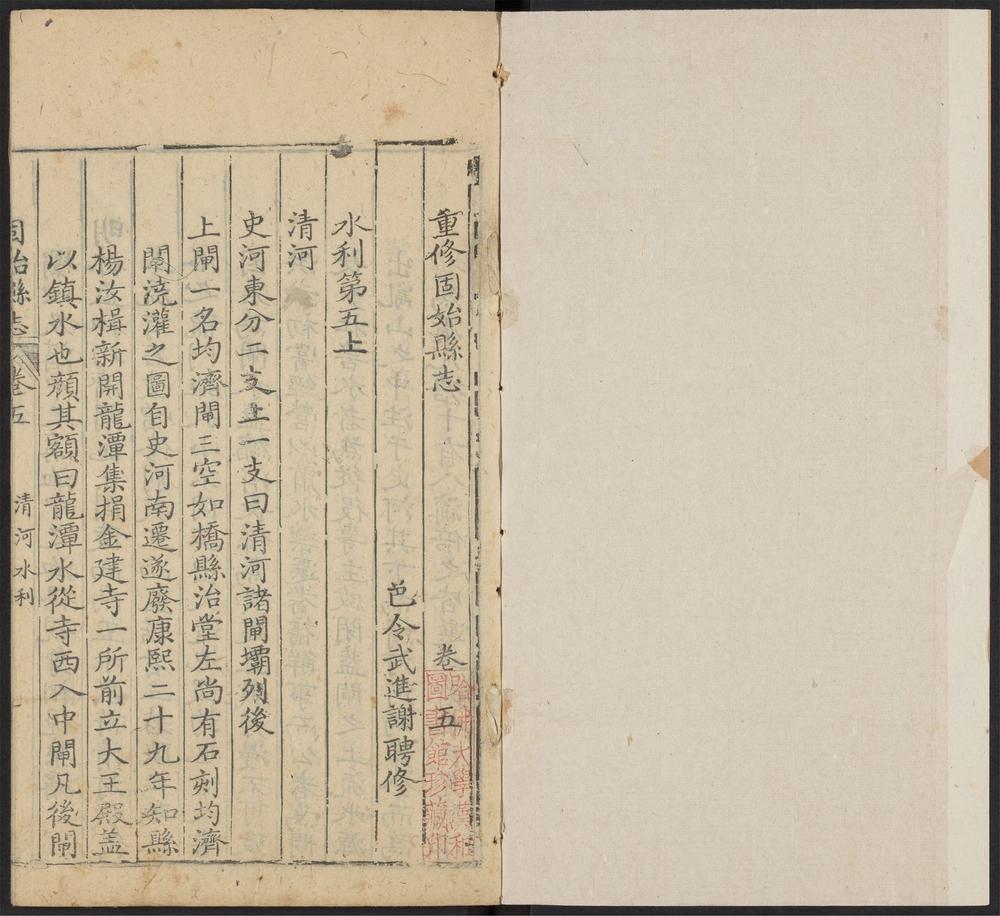 重修固始縣志 卷五
邑令武進謝聘修
水利第五上
清河
史河東分二支上一支曰清河諸閘壩列後
上閘一名均濟閘三空如橋縣治堂左尚有石刻均濟
閘澆灌之圖自史河南遷遂廢康熙二十九年知縣
楊汝楫新開龍潭集捐金建寺一所前立大王殿蓋
以鎮水也顏其額曰龍潭水從寺西入中閘凡後閘
固始縣志 卷五 清河水利
哈佛大學漢和
圖書館珍藏印